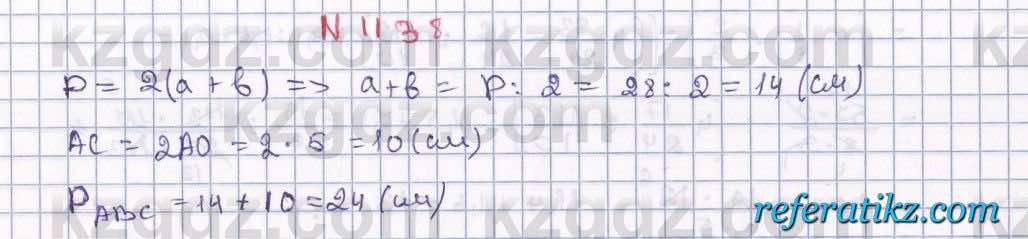 N 1138
kzgdz.com kzgdz.com kz
P = 2(a + в) => a+в = P : 2 = 28 : 2 = 14 (см)
kzgdz.com
AC = 2AO = 2 · 5 = 10 (см)
P ABC = 14 + 10 = 24 (см)
referatikz.com
kzgdz.com kzgdz.com